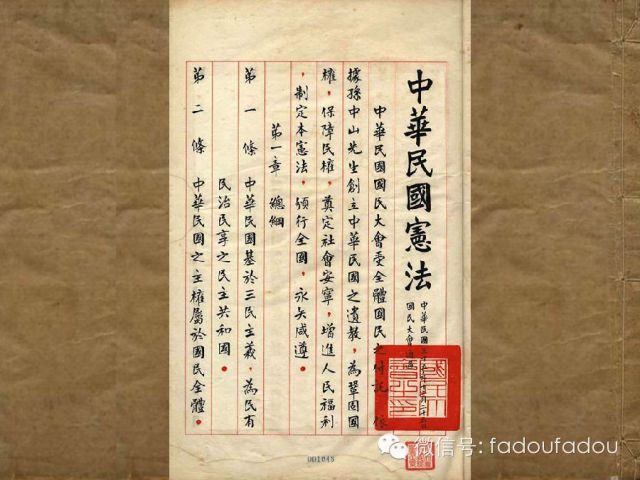 中華民國憲法
中華民國三十五年十二月二十五日
國民大會通過
中華民國國民大會受全體國民之付託,依
據孫中山先生創立中華民國之遺教,為鞏固國
權,保障民權,奠定社會安寧,增進人民福利
,制定本憲法,頒行全國,永矢咸遵。
第一章 總綱
第一條 中華民國基於三民主義,為民有
民治民享之民主共和國。
第二條 中華民國之主權屬於國民全體。
國民大會之印
微信号: fadoufadou